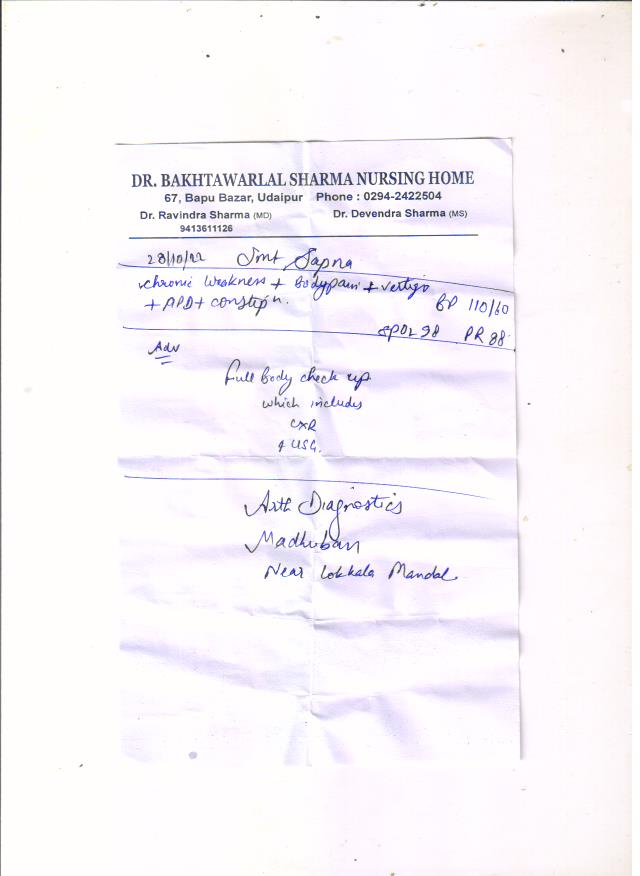 DR. BAKHTAWARLAL SHARMA NURSING HOME
67, Bapu Bazar, Udaipur Phone : 0294-2422504
Dr. Ravindra Sharma (MD) Dr. Devendra Sharma (MS)
9413611126
28/10/22 Smt Sapna
chronic weakness + Bodypain + vertigo
+ APD + constipn. BP 110/60
SPO2 98 PR 88
Adv
Full Body check up
which includes
CXR
& USG.
Arth Diagnostics
Madhuban
Near Lokkala Mandal